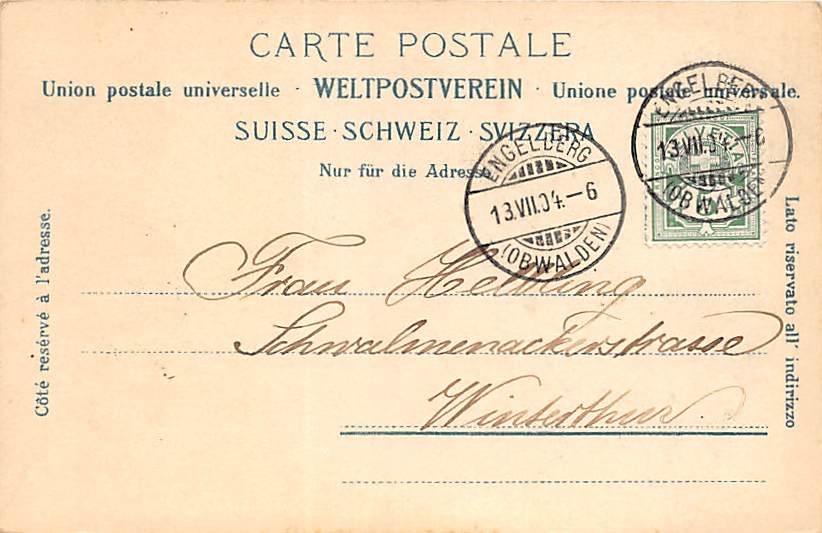 CARTE POSTALE
Union postale universelle · WELTPOSTVEREIN · Unione postale universale.
SUISSE · SCHWEIZ · SVIZZERA
Nur für die Adresse
ENGELBERG
13.VII.04.–6
(OBWALDEN)
ENGELBERG
13.VII.04.–6
(OBWALDEN)
Côté réservé à l'adresse.
Lato riservato all' indirizzo
Frau Helbling
Schwalmenackerstrasse
Winterthur.